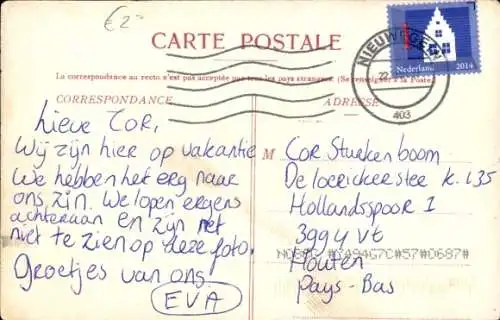 €2-
CARTE POSTALE
Nederland 2014
NIEUWEGEIN
22
403
La correspondance au recto n'est pas acceptée par tous les pays étrangers. (Se renseigner à la Poste)
CORRESPONDANCE
ADRESSE
Lieve COR,
Wij zijn hier op vakantie
We hebben het erg naar
ons zin. We lopen ergens
achteraan en zijn net
niet te zien op deze foto.
Groetjes van ons
EVA
M Cor Stuekenboom
k. L35
Hollandsspoor 1
3994 Vt
Houten
Pays-Bas